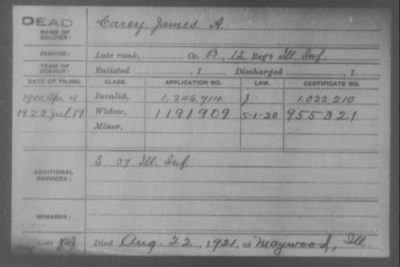 DEAD
NAME OF SOLDIER:
Carey James. A.
SERVICE:
Late rank, Co. B, 12 Reg't Ill Inf.
TERM OF SERVICE:
Enlisted , 1 Discharged , 1
DATE OF FILING. CLASS. APPLICATION NO. LAW. CERTIFICATE NO.
1900 Apr. 4 Invalid, 1.246.714 1.022.210
1922 Jul 19 Widow, 1191909 5-1-20 955321
Minor,
ADDITIONAL SERVICES:
E 07 Ill. Inf.
REMARKS:
Died Aug. 22, 1921, at Maywood, Ill.